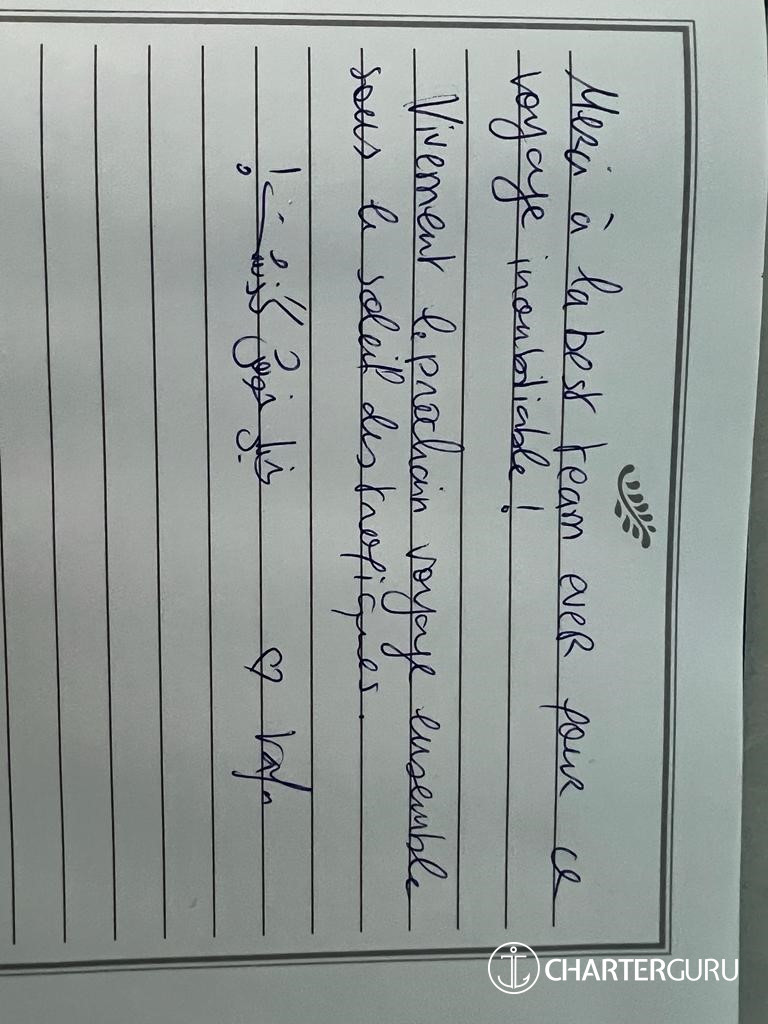 Merci à la best team ever pour ce
voyage inoubliable!
Vivement le prochain voyage ensemble
sous le soleil des tropiques.
♡
CHARTERGURU